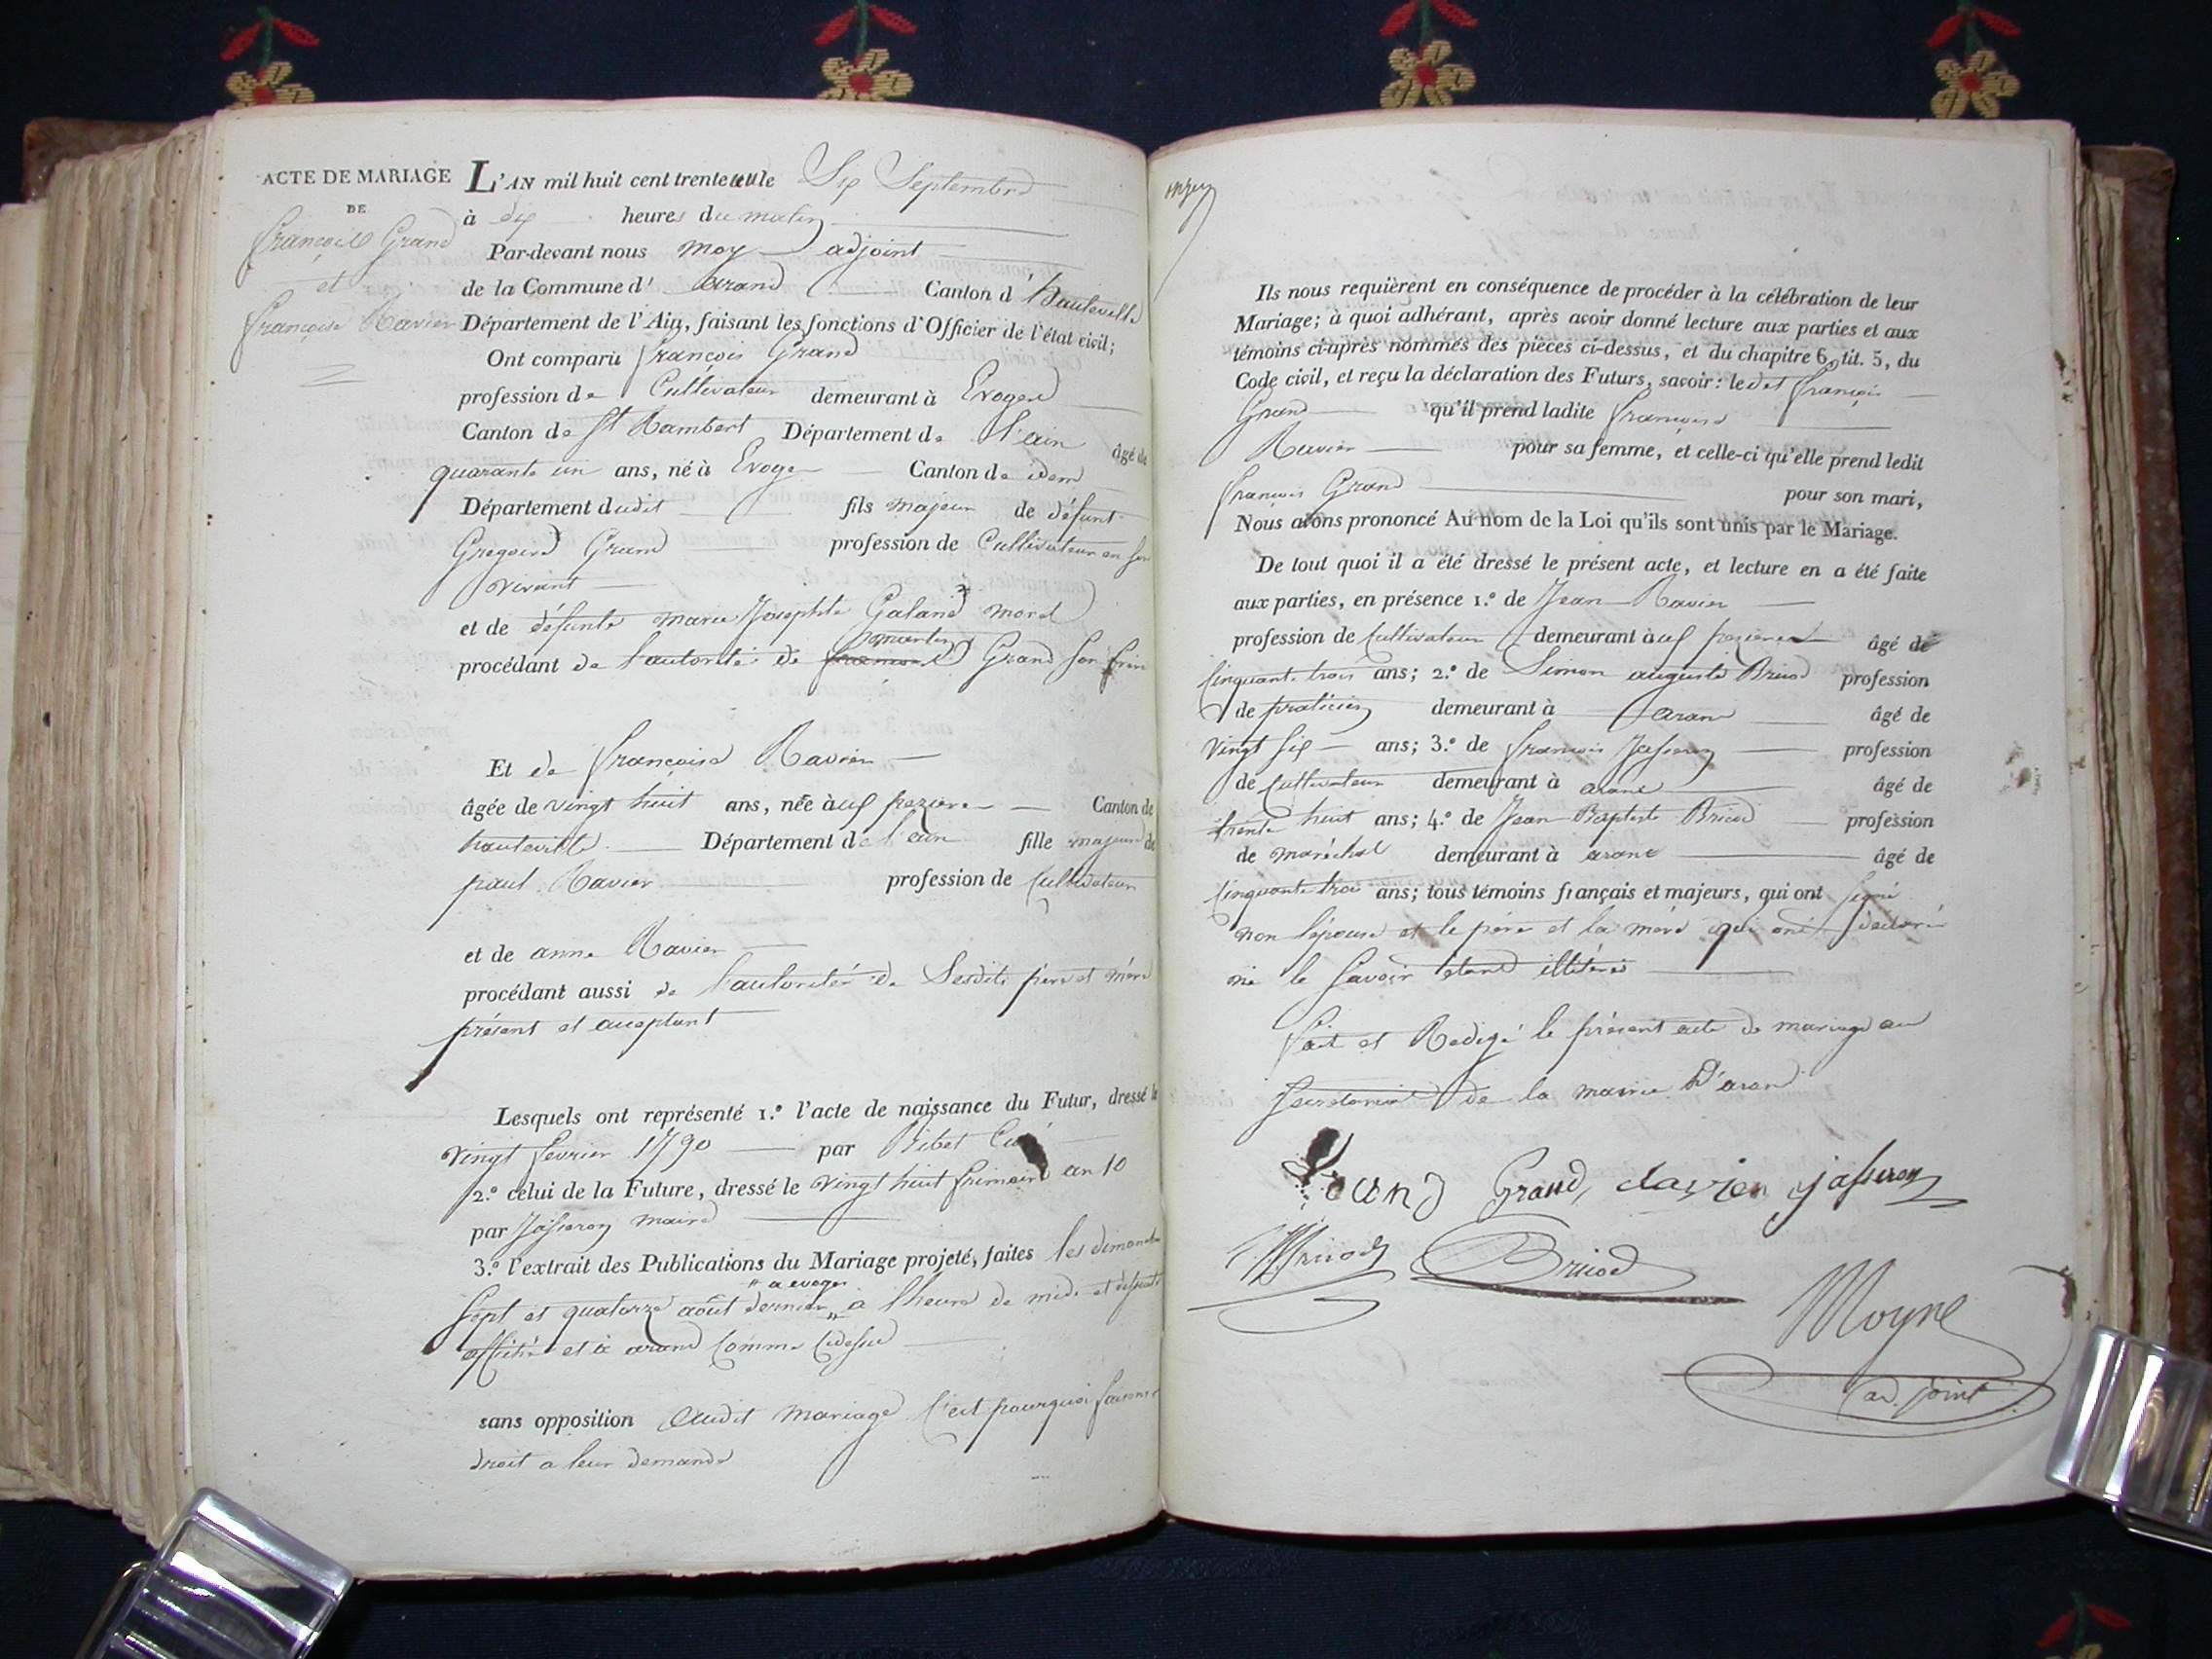 ACTE DE MARIAGE
DE
françois Grand
et
françoise Ravier
L'AN mil huit cent trente un le Six Septembre
à dix heures du matin
Par-devant nous moyne adjoint
de la Commune d' arand Canton d'hauteville
Département de l'Ain, faisant les fonctions d'Officier de l'état civil;
Ont comparu françois Grand
profession de Cultivateur demeurant à Evoges
Canton de St Rambert Département de l'ain âgé de
quarante un ans, né à Evoge Canton de idem
Département dudit fils majeur de défunt
Gregoire Grand profession de Cultivateur en son
vivant
et de défunte marie Josephte Galand
procédant de l'autorité de Grand son frère
Et de françoise Ravier
âgée de vingt huit ans, née à aux pezieres Canton de
hauteville Département de l'ain fille majeure de
paul Ravier profession de Cultivateur
et de anne Ravier
procédant aussi de l'autorité de Sesdits père et mère
présent et aceptant
Lesquels ont représenté 1.º l'acte de naissance du Futur, dressé le
vingt fevrier 1790 par Ribet Curé
2.º celui de la Future, dressé le vingt huit frimaire an 10
par Jasseron maire
3.º l'extrait des Publications du Mariage projeté, faites les dimanche
a evoges
Sept et quatorze août dernier à l'heure de midi et
affiché et à arand Comme Cidessus
sans opposition audit mariage C'est pourquoi faisant
droit a leur demande
Ils nous requièrent en conséquence de procéder à la célébration de leur
Mariage; à quoi adhérant, après avoir donné lecture aux parties et aux
témoins ci-après nommés des pièces ci-dessus, et du chapitre 6, tit. 5, du
Code civil, et reçu la déclaration des Futurs, savoir: ledit françois
Grand qu'il prend ladite françoise
Ravier pour sa femme, et celle-ci qu'elle prend ledit
françois Grand pour son mari,
Nous avons prononcé Au nom de la Loi qu'ils sont unis par le Mariage.
De tout quoi il a été dressé le présent acte, et lecture en a été faite
aux parties, en présence 1.º de Jean Ravier
profession de Cultivateur demeurant à aux pezieres âgé de
Cinquante trois ans; 2.º de Simon auguste Bruod profession
de praticien demeurant à arand âgé de
vingt Six ans; 3.º de françois Jasseron profession
de Cultivateur demeurant à arand âgé de
trente huit ans; 4.º de Jean Baptiste Bruod profession
de maréchal demeurant à arand âgé de
Cinquante trois ans; tous témoins français et majeurs, qui ont signé
non l'épouse et le père et la mère qui ont déclaré
ne le Savoir étant illitérés
fait et Redigé le présent acte de mariage au
Secretariat de la mairie D'arand
Grand Grand, Ravier jasseron
Bruod Bruod
Moyne
adjoint